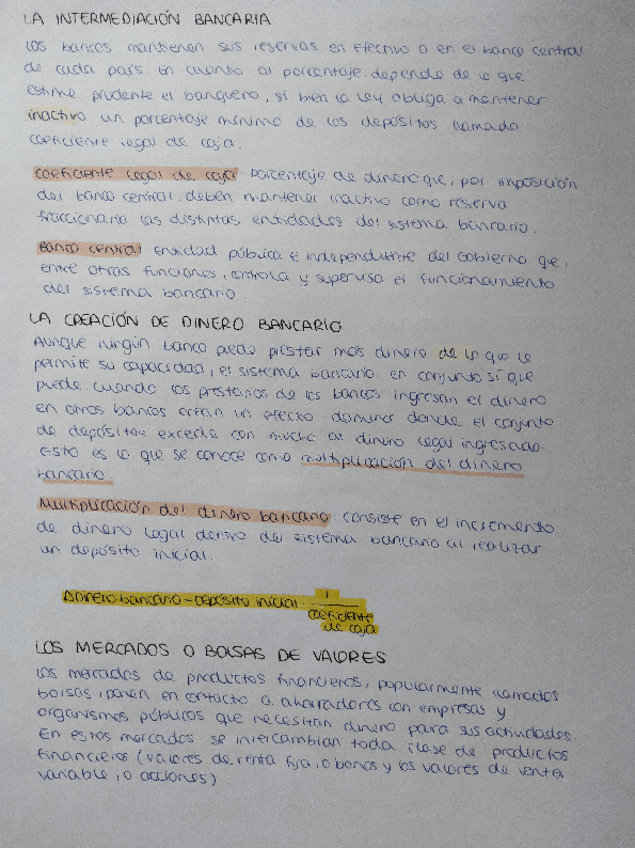 LA INTERMEDIACIÓN BANCARIA
Los bancos mantienen sus reservas en efectivo o en el banco central
de cada país. En cuanto al porcentaje. depende de lo que
estime prudente el banquero, si bien la ley obliga a mantener
inactivo un porcentaje mínimo de los depósitos llamado
coeficiente legal de caja.
Coeficiente legal de caja: porcentaje de dinero que, por imposición
del banco central. deben mantener inactivo como reserva
fraccionaria las distintas entidades del sistema bancario.
Banco central: entidad pública e independiente del Gobierno que,
entre otras funciones, controla y supervisa el funcionamiento
del sistema bancario
LA CREACIÓN DE DINERO BANCARIO
Aunque ningún banco puede prestar más dinero de lo que le
permite su capacidad, el sistema bancario en conjunto sí que
puede. Cuando los prestatarios de los bancos ingresan el dinero
en otros bancos crean un efecto dominó donde el conjunto
de depósitos exceda con mucho al dinero legal ingresado.
Esto es lo que se conoce como multiplicación del dinero
bancario.
Multiplicación del dinero bancario: consiste en el incremento
de dinero legal dentro del sistema bancario al realizar
un depósito inicial.
Δ Dinero bancario = depósito inicial · 1
coeficiente
de caja
LOS MERCADOS O BOLSAS DE VALORES
Los mercados de productos financieros, popularmente llamados
bolsas, ponen en contacto a ahorradores con empresas y
organismos públicos que necesitan dinero para sus actividades.
En estos mercados se intercambian toda clase de productos
financieros (valores de renta fija, o bonos y los valores de renta
variable, o acciones)